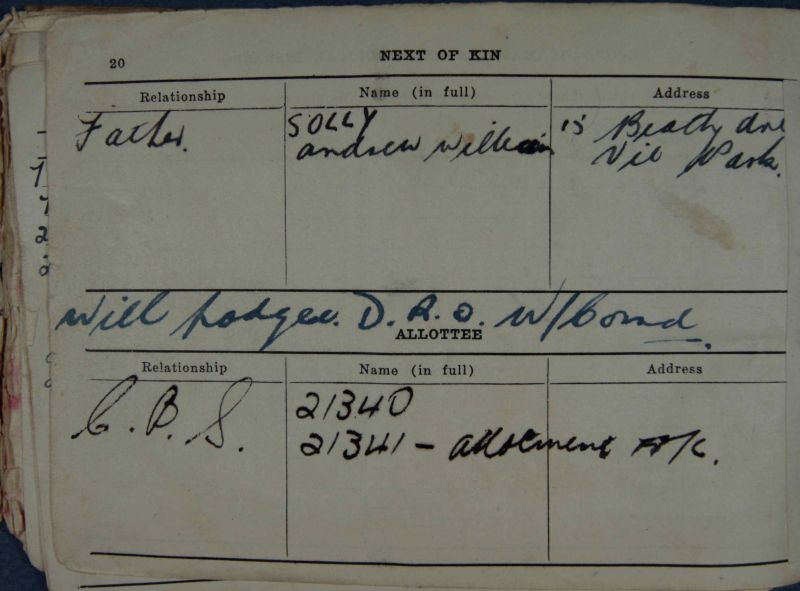 20
NEXT OF KIN
Relationship Name (in full) Address
Father. SOLLY 15 Beatty Ave
Andrew William Vic Park.
Will Lodged. D.R.O. W/Comd.
ALLOTTEE
Relationship Name (in full) Address
C.B.S. 21340
21341 - Allotment A/c.